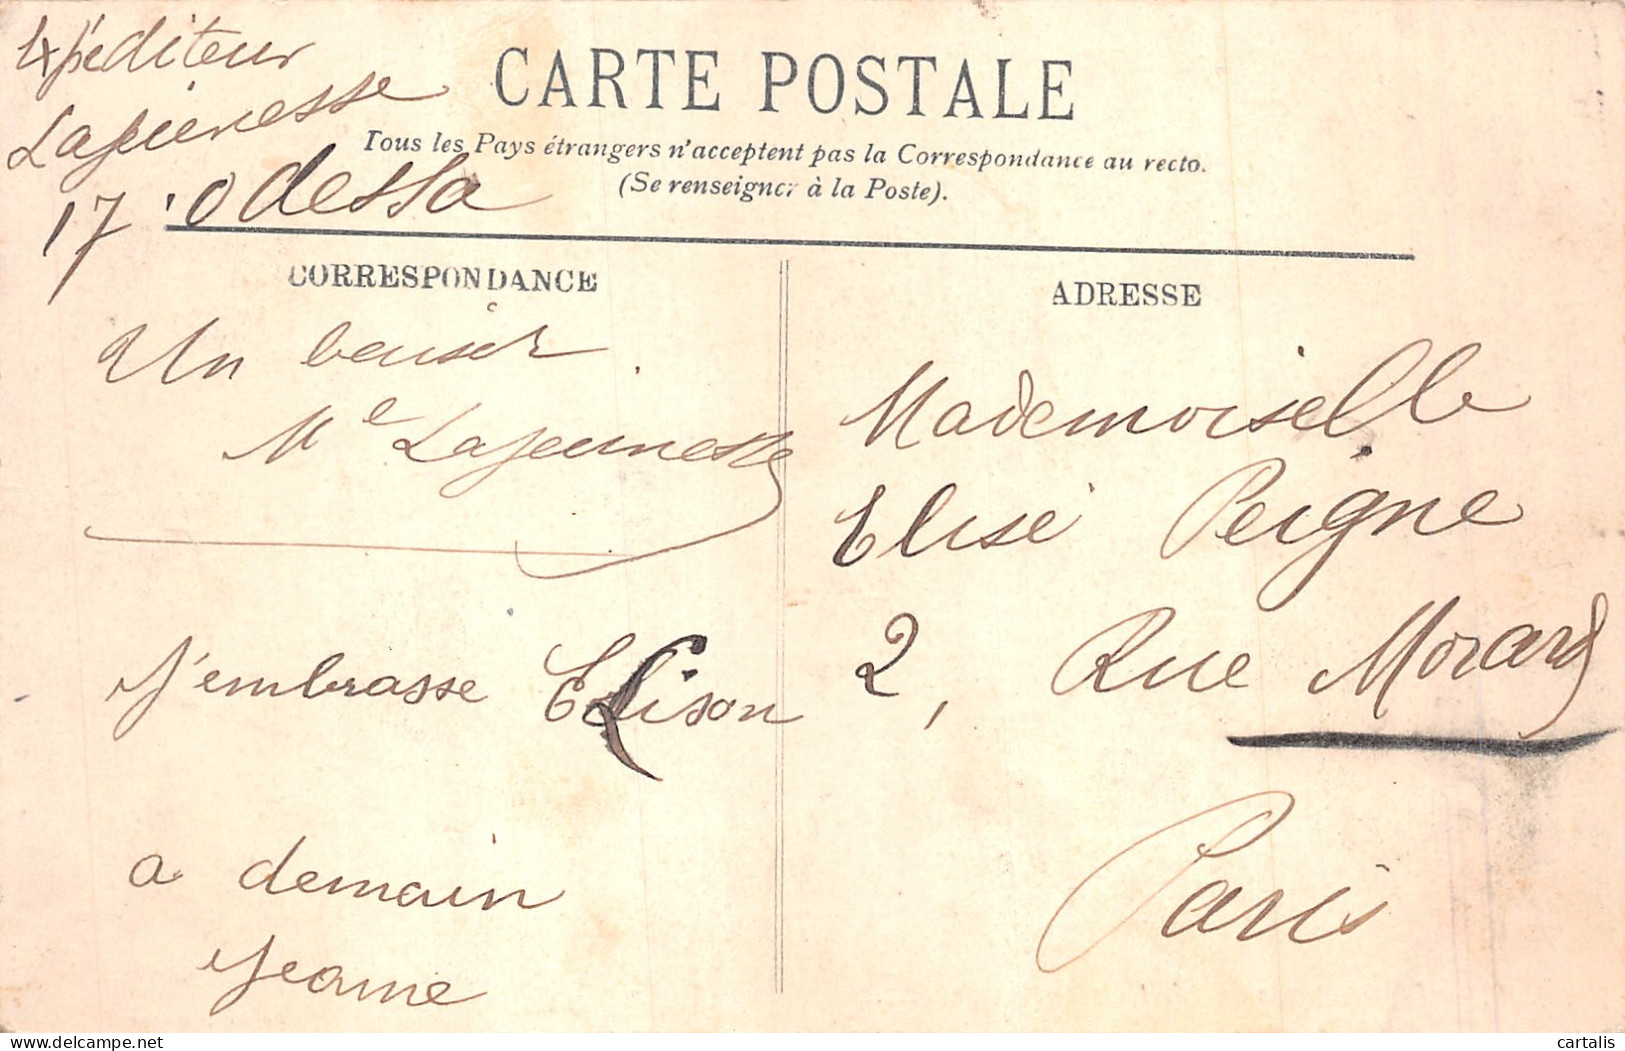 Expéditeur
Lajeunesse
17 . Odessa
CARTE POSTALE
Tous les Pays étrangers n'acceptent pas la Correspondance au recto.
(Se renseigner à la Poste).
CORRESPONDANCE
Un baiser
Me Lajeunesse
J'embrasse Elison
a demain
Jeanne
ADRESSE
Mademoiselle
Elise Peigne
2, Rue Morard
Paris
delcampe.net
cartalis